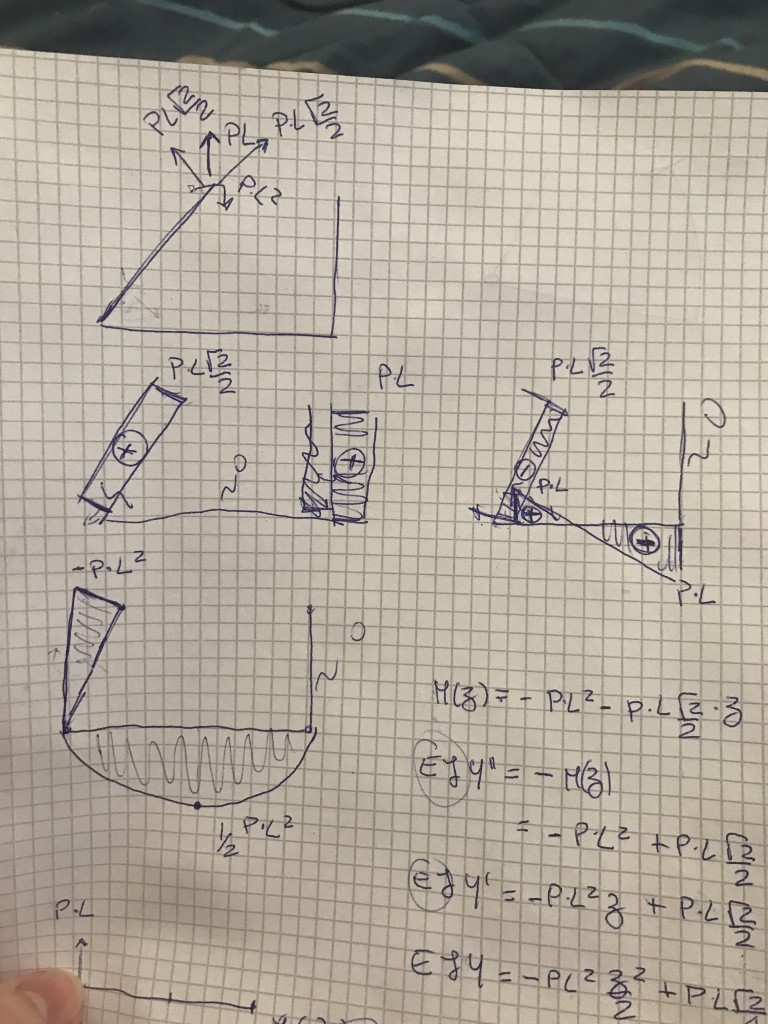 P·L √2/2
PL
P·L √2/2
P·L²
P·L √2/2
P·L
P·L √2/2
0
0
+
+
-
P·L
+
+
P·L
-P·L²
0
M(z) = - P·L² - P·L √2/2 · z
EJ y'' = - M(z)
= - P·L² + P·L √2/2
EJ y' = -P·L² z + P·L √2/2
EJ y = -PL² z²/2 + PL √2
1/2 P·L²
P·L